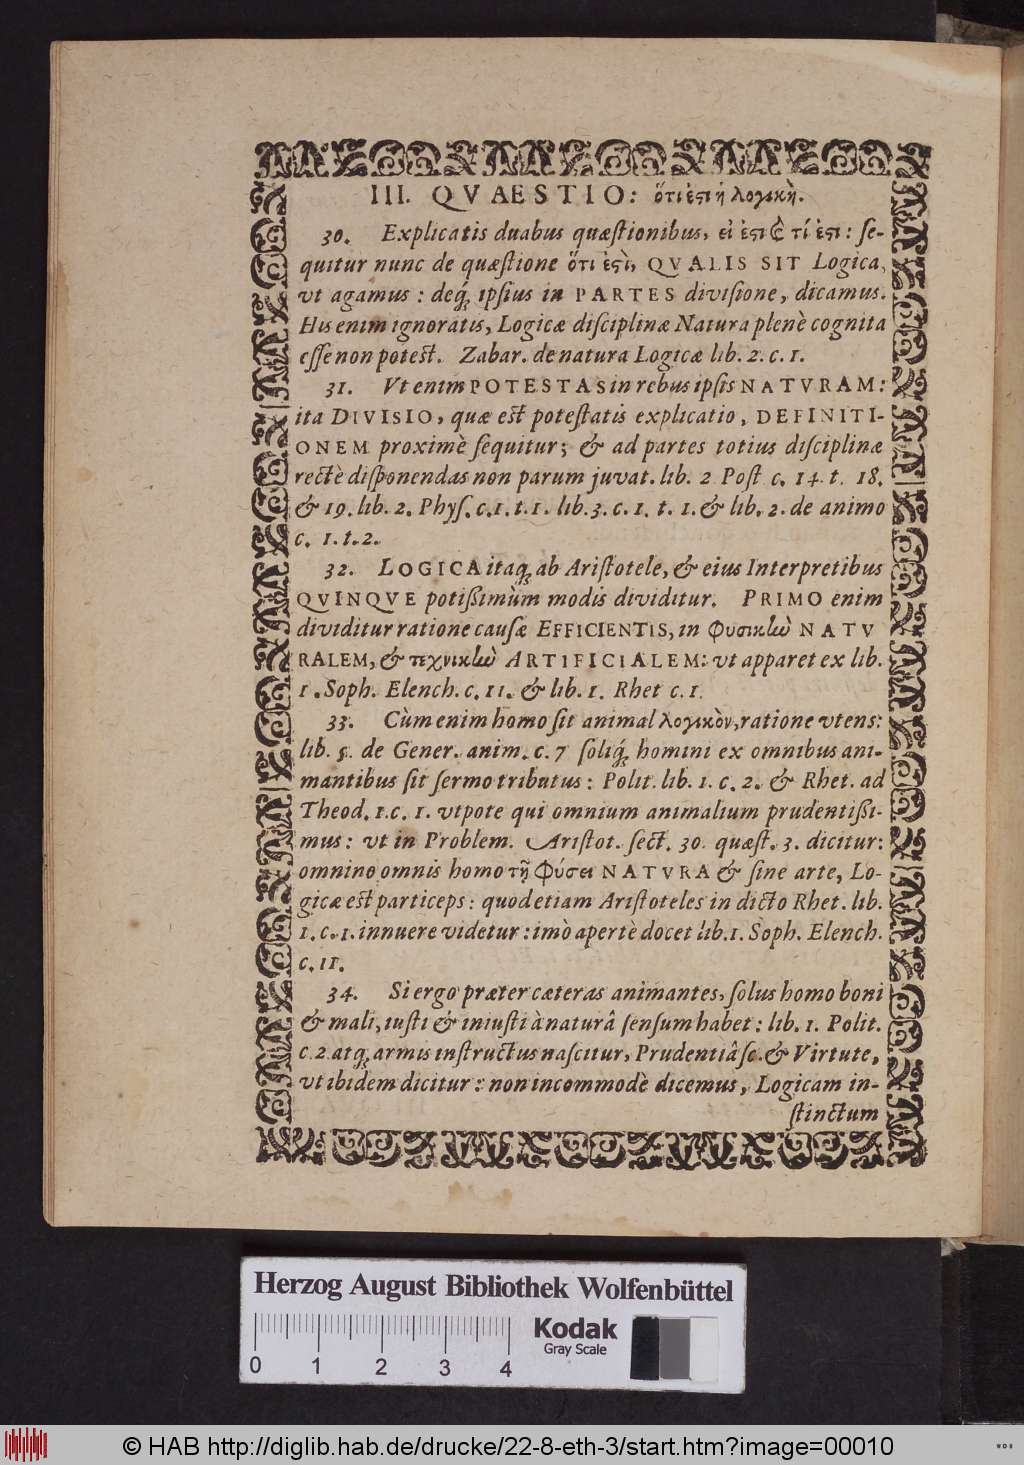 III. QVAESTIO: ὅτι ἐϛι ἡ λογικὴ.
30. Explicatis duabus quæſtionibus, εἰ ἐϛι & τί ἐϛι: ſe-
quitur nunc de quæſtione ὅτι ἐϛὶ, QVALIS SIT Logica,
vt agamus: deq́ꝫ ipſius in PARTES diviſione, dicamus.
His enim ignoratis, Logicæ diſciplinæ Natura plenè cognita
eſſe non poteſt. Zabar. de natura Logicæ lib. 2. c. 1.
31. Vt enim POTESTAS in rebus ipſis NATVRAM:
ita DIVISIO, quæ eſt poteſtatis explicatio, DEFINITI-
ONEM proximè ſequitur; & ad partes totius diſciplinæ
rectè diſponendas non parum juvat. lib. 2 Poſt c. 14. t. 18.
& 19. lib. 2. Phyſ. c. 1. t. 1. lib. 3. c. 1. t. 1. & lib. 2. de animo
c. 1. t. 2.
32. LOGICA itaqꝫ ab Ariſtotele, & eius Interpretibus
QVINQVE potißimùm modis dividitur. PRIMO enim
dividitur ratione cauſæ EFFICIENTIS, in φυσικὼ NATV
RALEM, & τεχνικὼ ARTIFICIALEM: vt apparet ex lib.
1. Soph. Elench. c. 11. & lib. 1. Rhet c. 1.
33. Cùm enim homo ſit animal λογικὸν, ratione vtens:
lib. 5. de Gener. anim. c. 7 ſoliq́ꝫ homini ex omnibus ani-
mantibus ſit ſermo tributus: Polit. lib. 1. c. 2. & Rhet. ad
Theod. 1. c. 1. vtpote qui omnium animalium prudentißi-
mus: vt in Problem. Ariſtot. ſect. 30. quæſt. 3. dicitur:
omnino omnis homo τῇ φύσει NATVRA & ſine arte, Lo-
gicæ eſt particeps: quod etiam Ariſtoteles in dicto Rhet. lib.
1. c. 1. innuere videtur: imò apertè docet lib. 1. Soph. Elench.
c. 11.
34. Si ergo præter cæteras animantes, ſolus homo boni
& mali, iuſti & iniuſti à naturâ ſenſum habet: lib. 1. Polit.
c. 2. atqꝫ armis inſtructus naſcitur, Prudentiâ ſc. & Virtute,
vt ibidem dicitur: non incommodè dicemus, Logicam in-
ſtinctum
Herzog August Bibliothek Wolfenbüttel
Kodak
Gray Scale
0 1 2 3 4
© HAB http://diglib.hab.de/drucke/22-8-eth-3/start.htm?image=00010